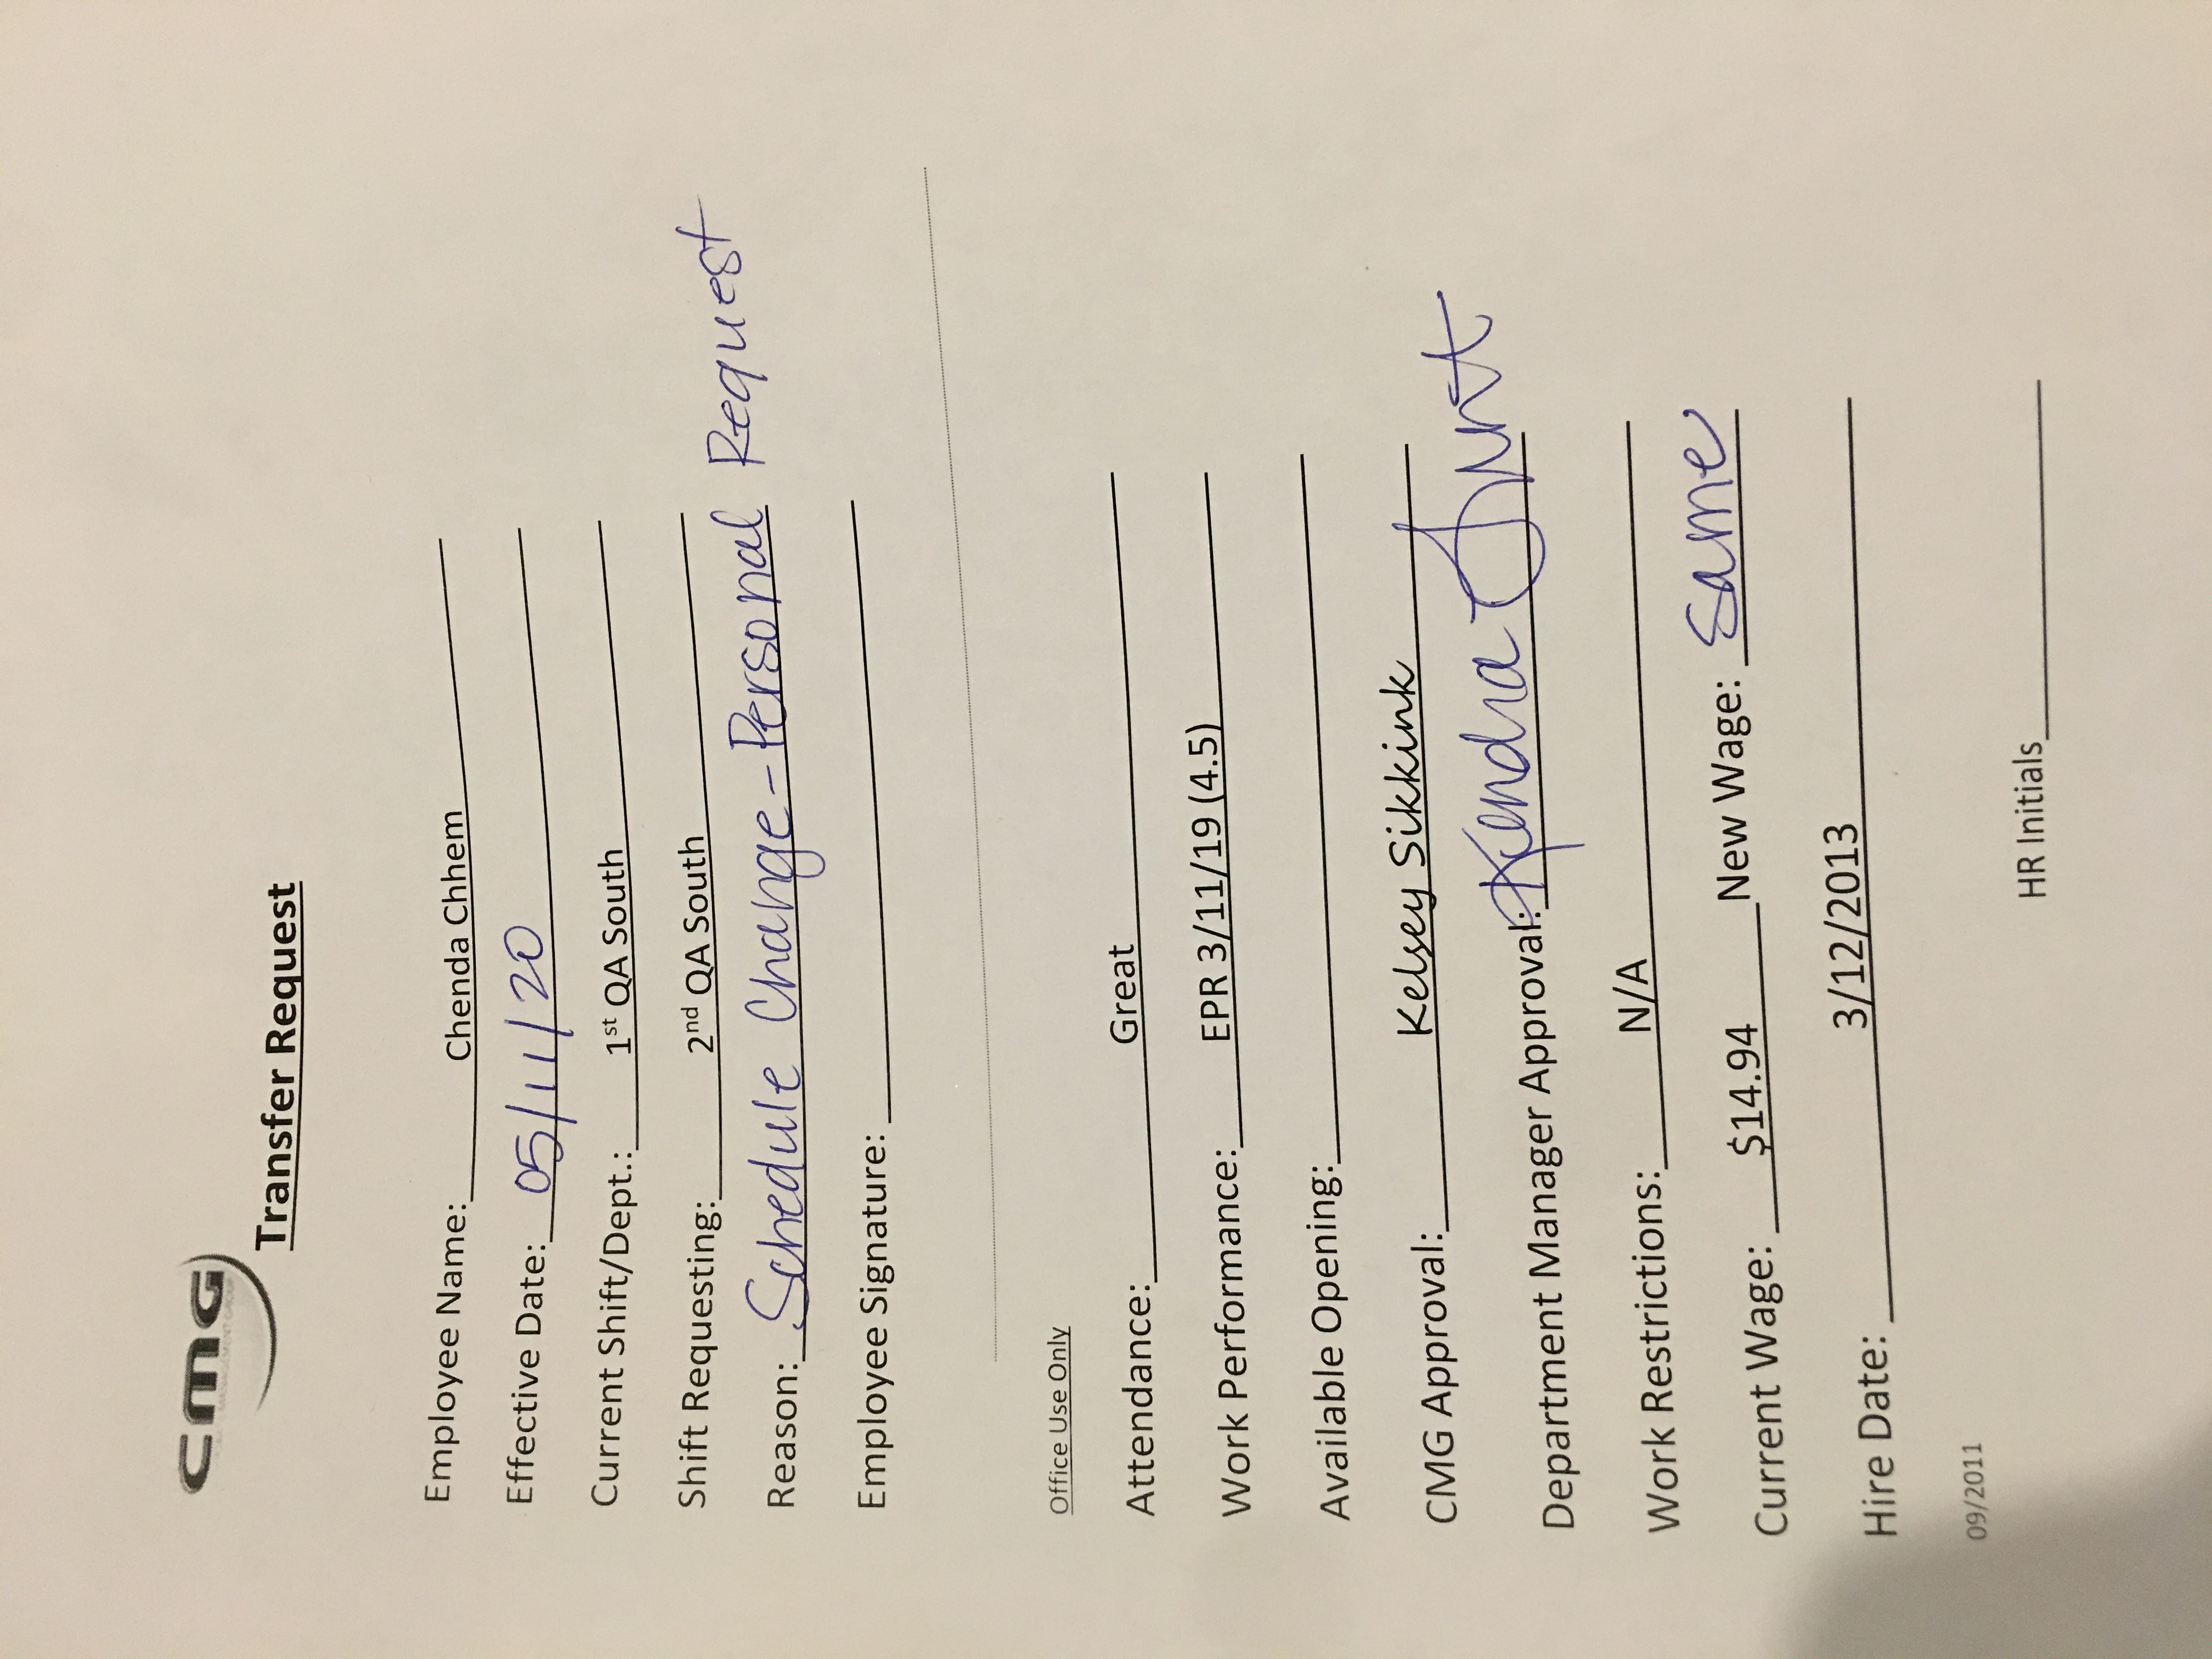 cmg
Transfer Request
Employee Name: Chenda Chhem
Effective Date: 05/11/20
Current Shift/Dept.: 1st QA South
Shift Requesting: 2nd QA South
Reason: Schedule Change - Personal Request
Employee Signature:
Office Use Only
Attendance: Great
Work Performance: EPR 3/11/19 (4.5)
Available Opening:
CMG Approval: Kelsey Sikkink
Department Manager Approval: Kendra
Work Restrictions: N/A
Current Wage: $14.94 New Wage: Same
Hire Date: 3/12/2013
HR Initials
09/2011